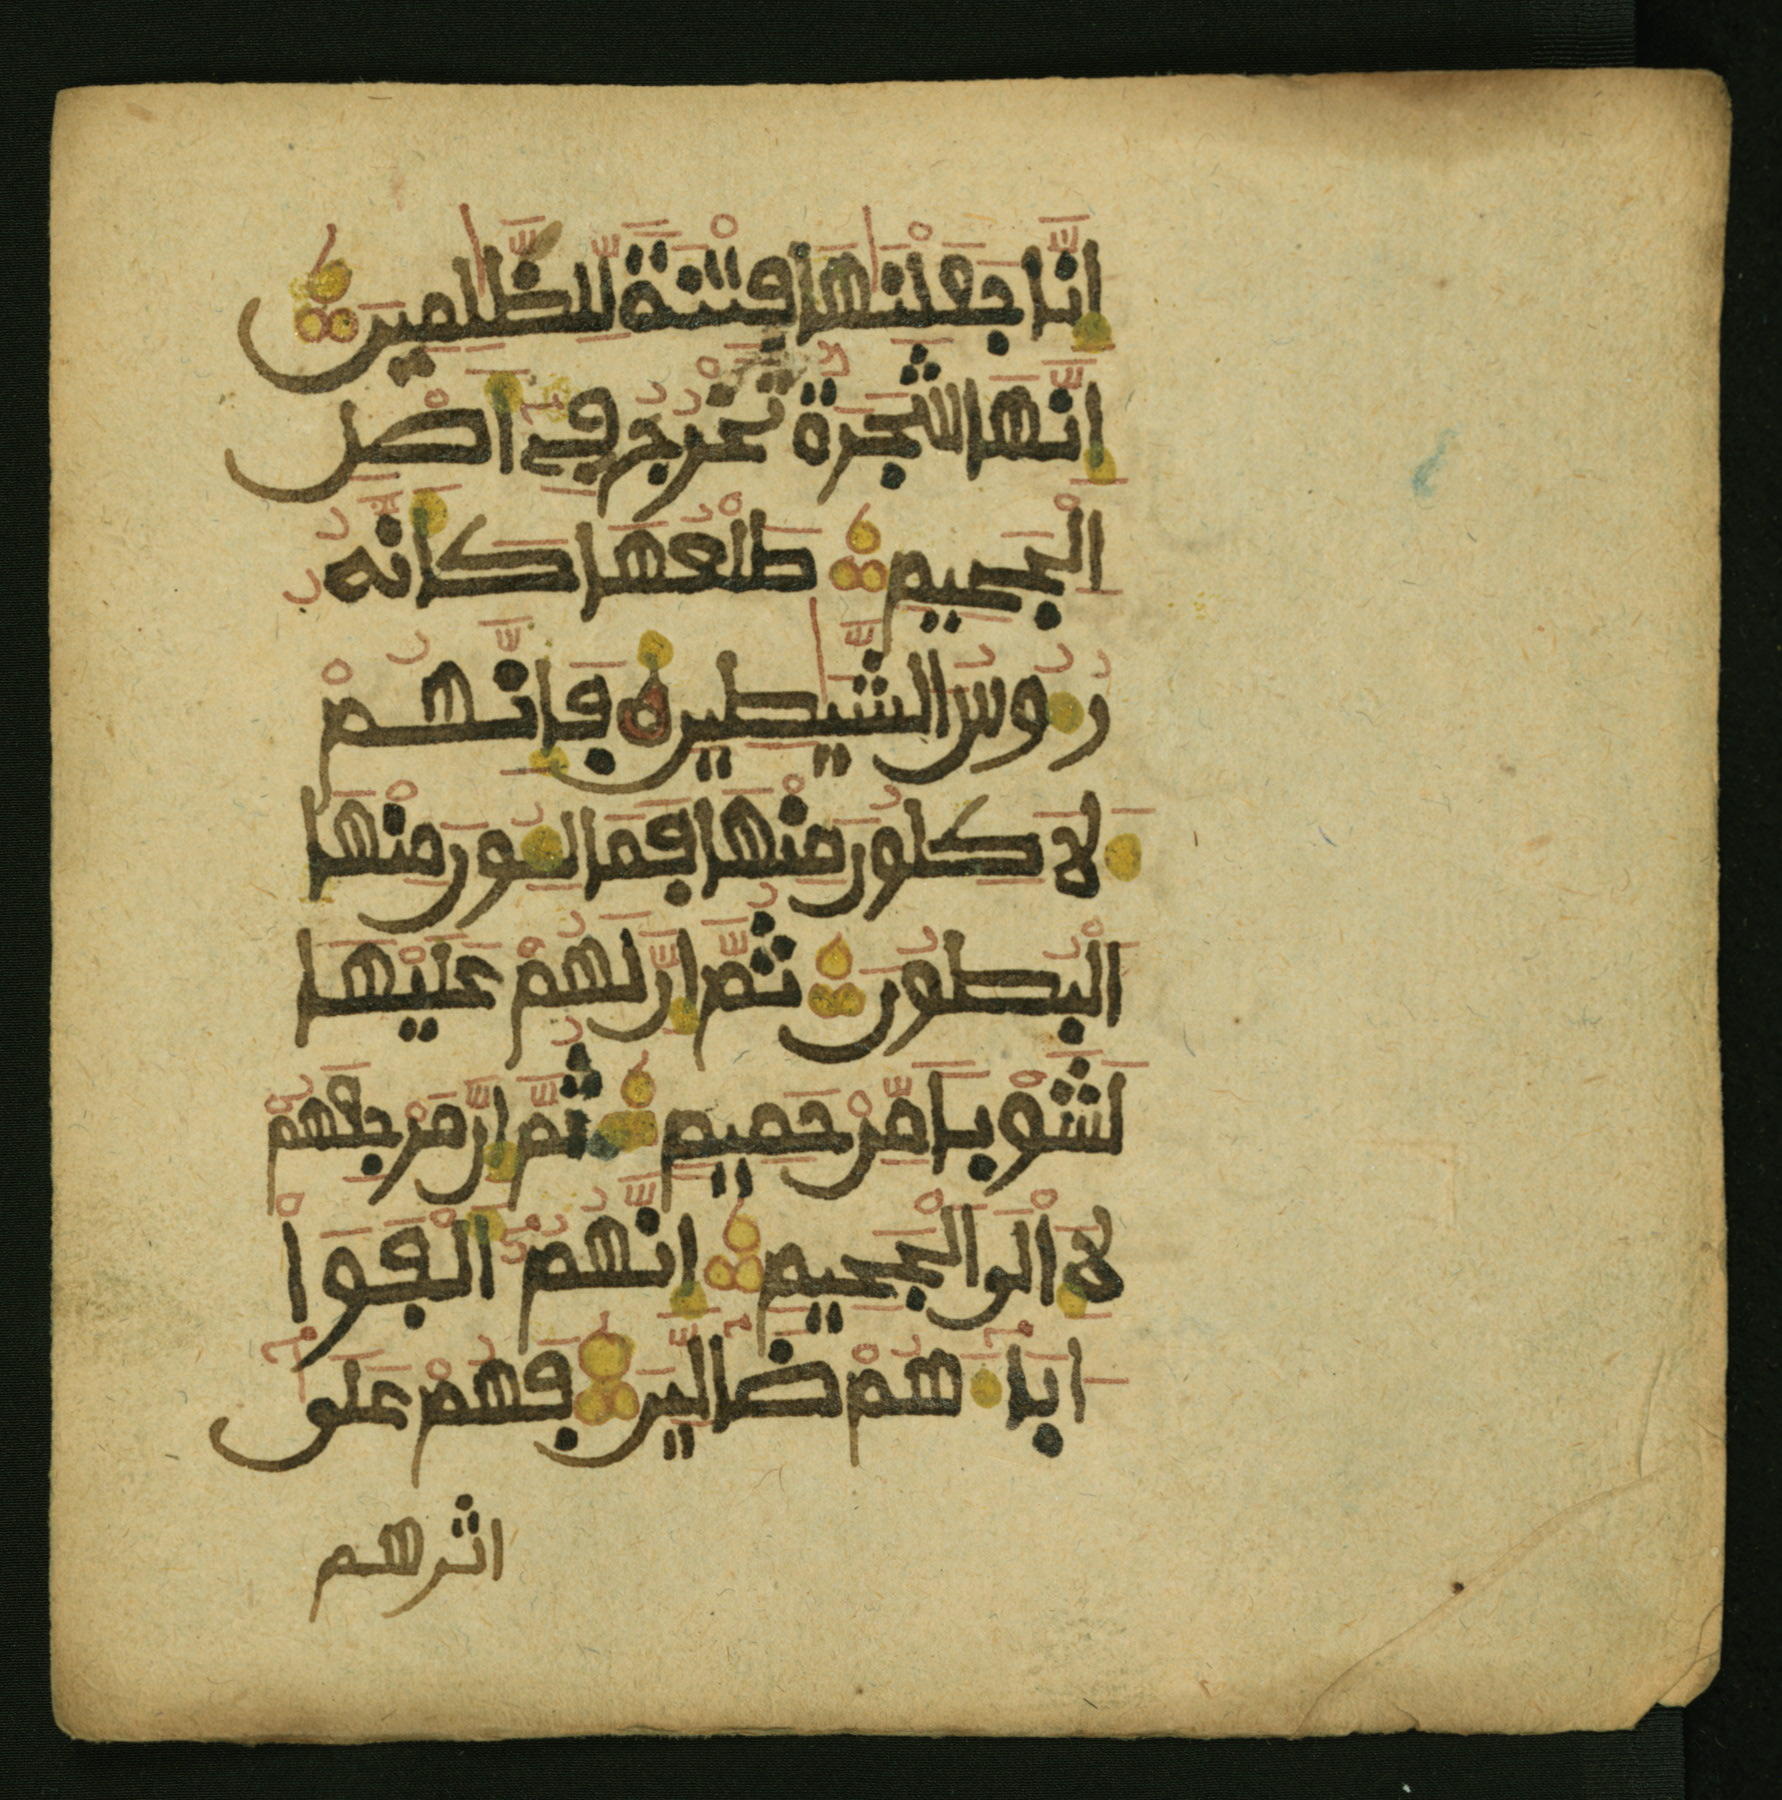 اِنَّا جَعَلْنَٰهَا فِتْنَةً لِّلظَّٰلِمِينَ
اِنَّهَا شَجَرَةٌ تَخْرُجُ فِےٓ أَصْلِ
اِ۬لْجَحِيمِ طَلْعُهَا كَأَنَّهُۥ
رُءُوسُ الشَّيَٰطِينِ فَإِنَّهُمْ
ءَلَاكِلُونَ مِنْهَا فَمَالِـُٔونَ مِنْهَا
اَ۬لْبُطُونَ ثُمَّ إِنَّ لَهُمْ عَلَيْهَا
لَشَوْباٗ مِّنْ حَمِيمٖ ثُمَّ إِنَّ مَرْجِعَهُمْ
لَإِاْلَى اَ۬لْجَحِيمِ إِنَّهُمُۥٓ أَلْفَوَاْ
ءَابَآءَهُمْ ضَآلِّينَ فَهُمْ عَلَىٰٓ
اثرهم